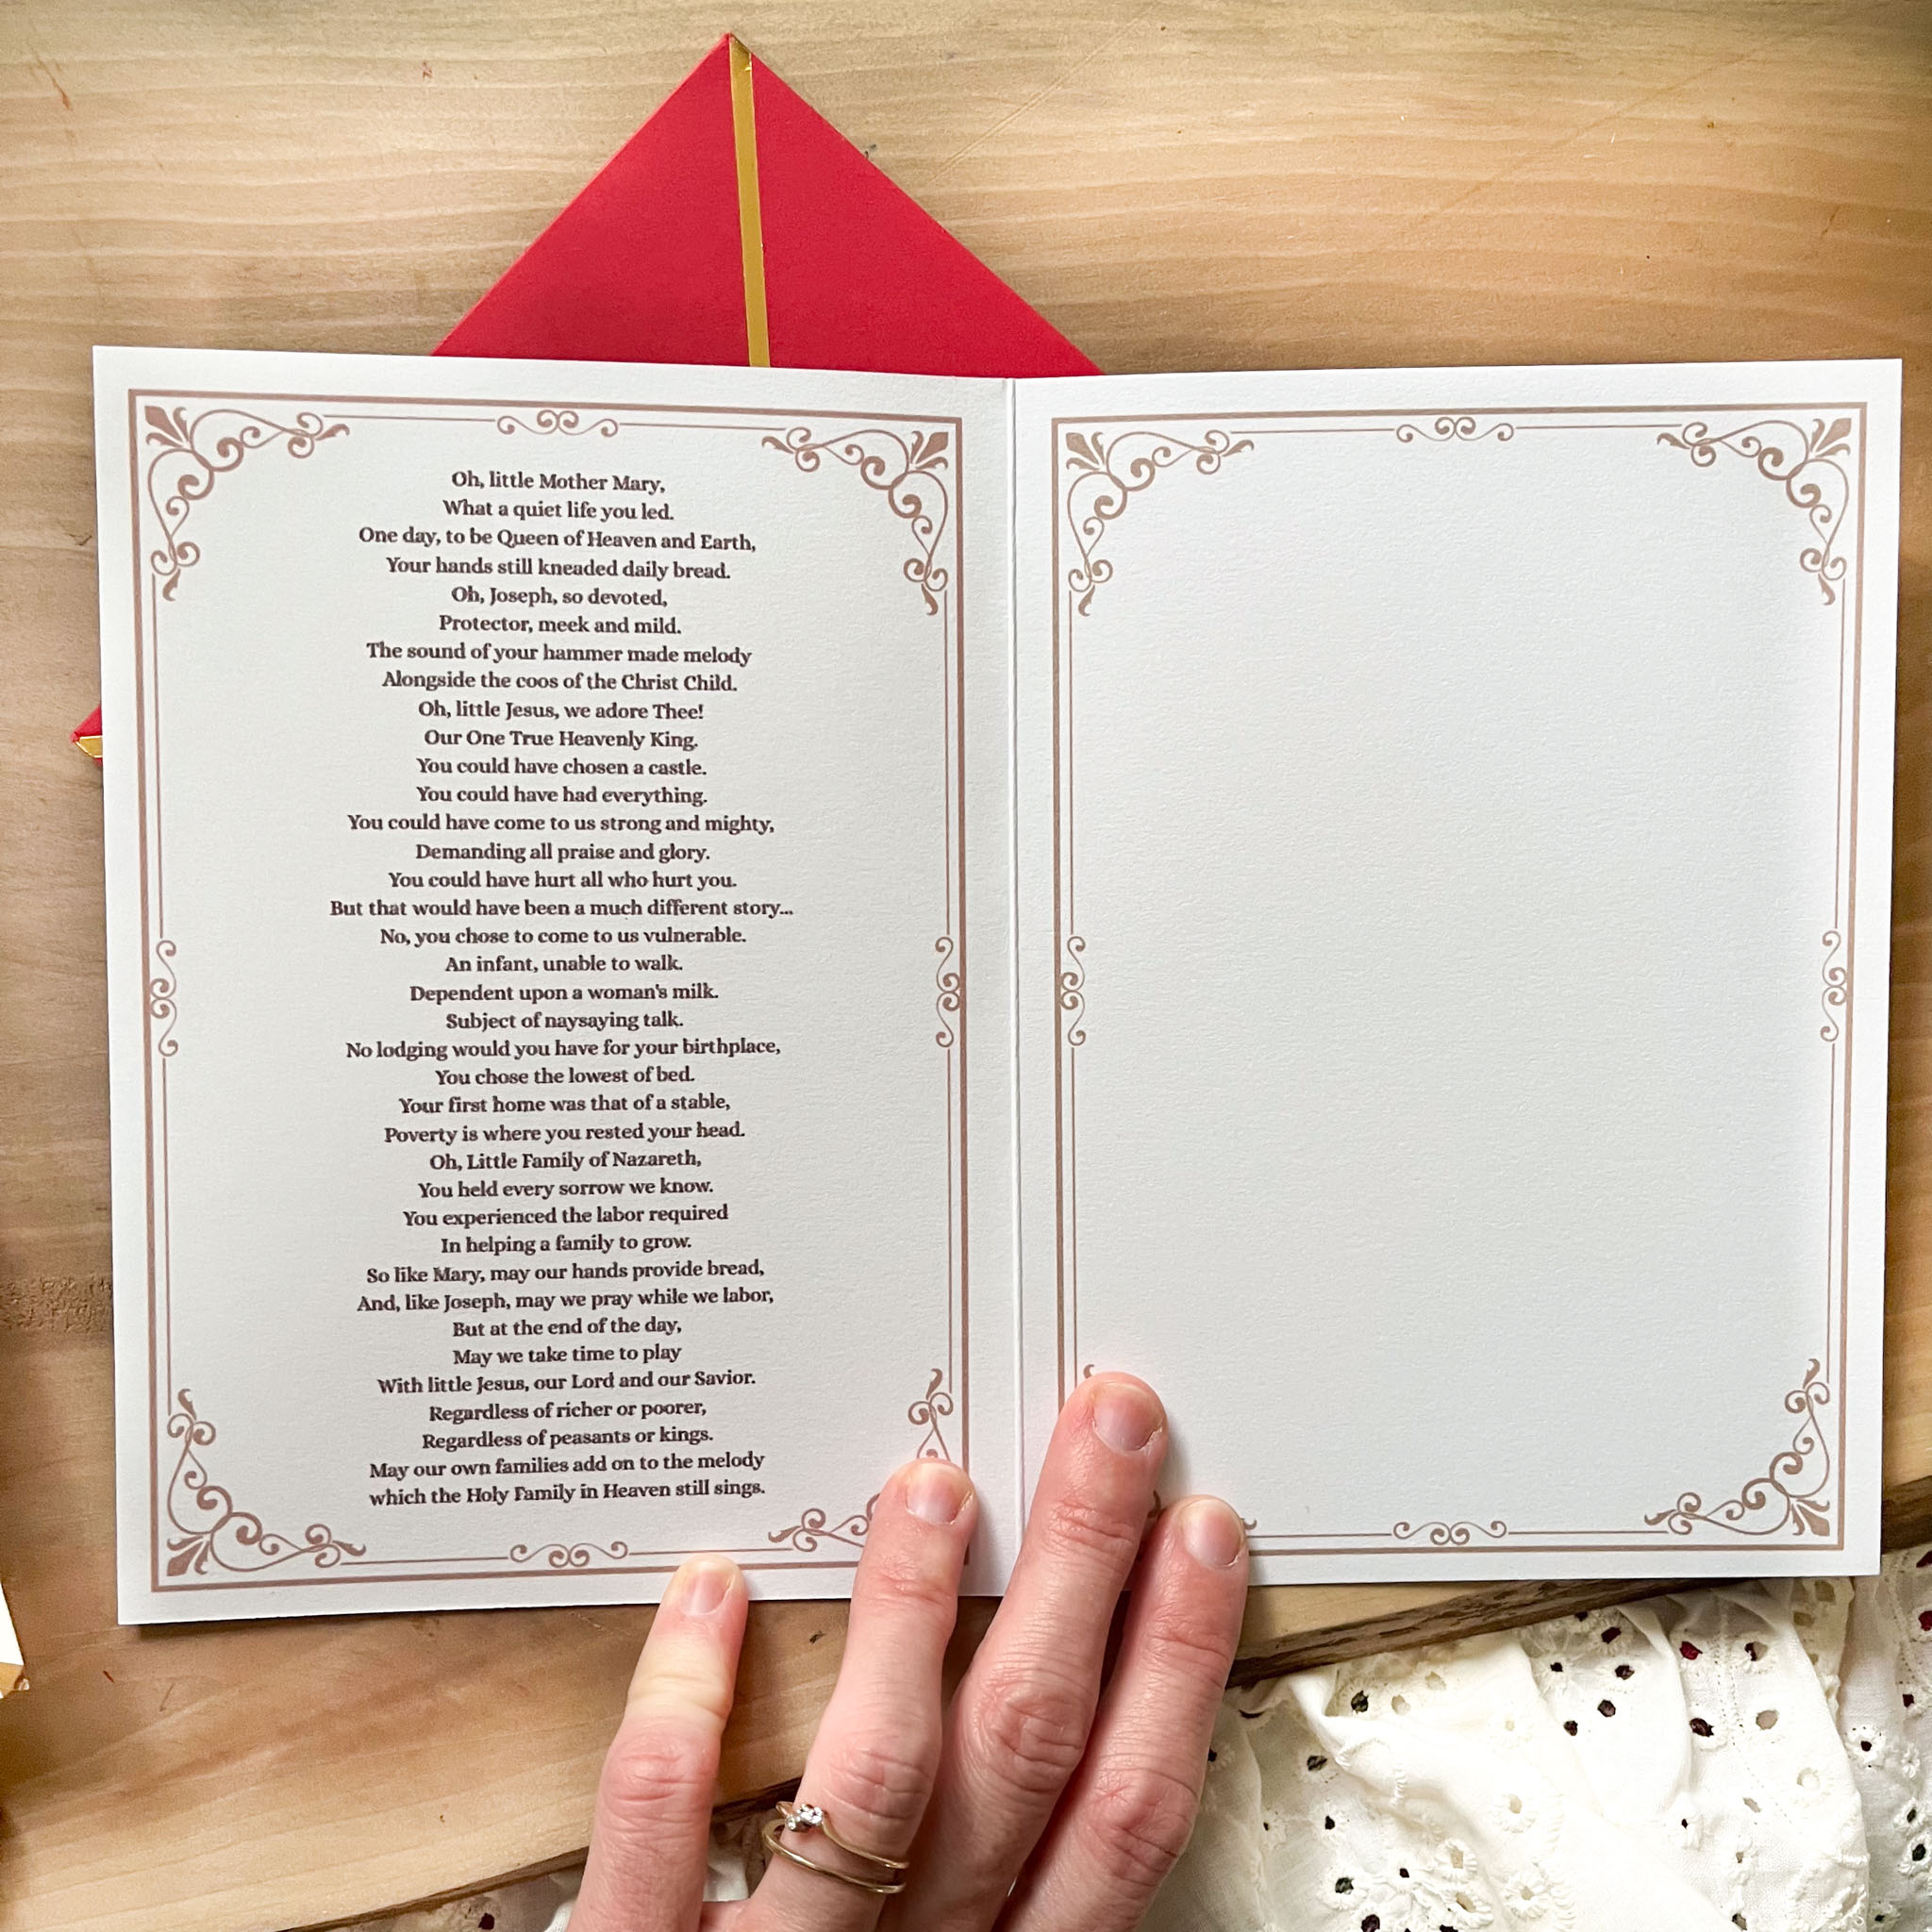 Oh, little Mother Mary,
What a quiet life you led.
One day, to be Queen of Heaven and Earth,
Your hands still kneaded daily bread.
Oh, Joseph, so devoted,
Protector, meek and mild.
The sound of your hammer made melody
Alongside the coos of the Christ Child.
Oh, little Jesus, we adore Thee!
Our One True Heavenly King.
You could have chosen a castle.
You could have had everything.
You could have come to us strong and mighty,
Demanding all praise and glory.
You could have hurt all who hurt you.
But that would have been a much different story...
No, you chose to come to us vulnerable.
An infant, unable to walk.
Dependent upon a woman's milk.
Subject of naysaying talk.
No lodging would you have for your birthplace,
You chose the lowest of bed.
Your first home was that of a stable,
Poverty is where you rested your head.
Oh, Little Family of Nazareth,
You held every sorrow we know.
You experienced the labor required
In helping a family to grow.
So like Mary, may our hands provide bread,
And, like Joseph, may we pray while we labor,
But at the end of the day,
May we take time to play
With little Jesus, our Lord and our Savior.
Regardless of richer or poorer,
Regardless of peasants or kings.
May our own families add on to the melody
which the Holy Family in Heaven still sings.